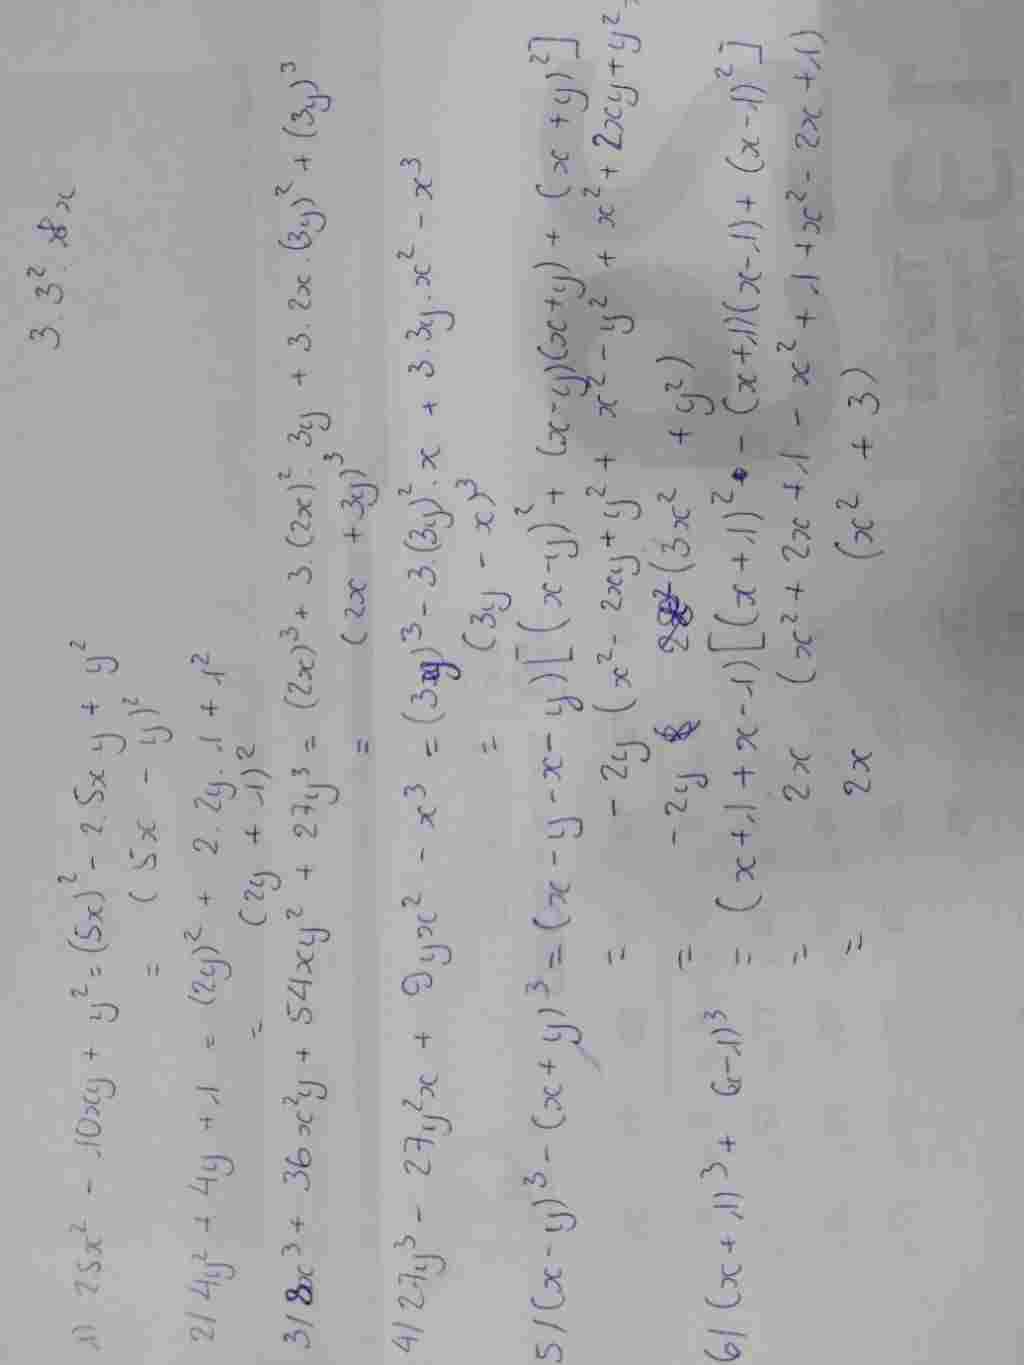 3.3².x
1) 25x² - 10xy + y² = (5x)² - 2.5xy + y²
= (5x - y)²
2) 4y² + 4y + 1 = (2y)² + 2.2y.1 + 1²
= (2y + 1)²
3) 8x³ + 36x²y + 54xy² + 27y³ = (2x)³ + 3.(2x)².3y + 3.2x.(3y)² + (3y)³
= (2x + 3y)³
4) 27y³ - 27y²x + 9yx² - x³ = (3y)³ - 3.(3y)².x + 3.3y.x² - x³
= (3y - x)³
5) (x - y)³ - (x + y)³ = (x - y - x - y)[(x - y)² + (x - y)(x + y) + (x + y)²]
= - 2y (x² - 2xy + y² + x² - y² + x² + 2xy + y²
= - 2y (3x² + y²)
6) (x + 1)³ + (x - 1)³ = (x + 1 + x - 1)[(x + 1)² - (x + 1)(x - 1) + (x - 1)²]
= 2x (x² + 2x + 1 - x² + 1 + x² - 2x + 1)
= 2x (x² + 3)